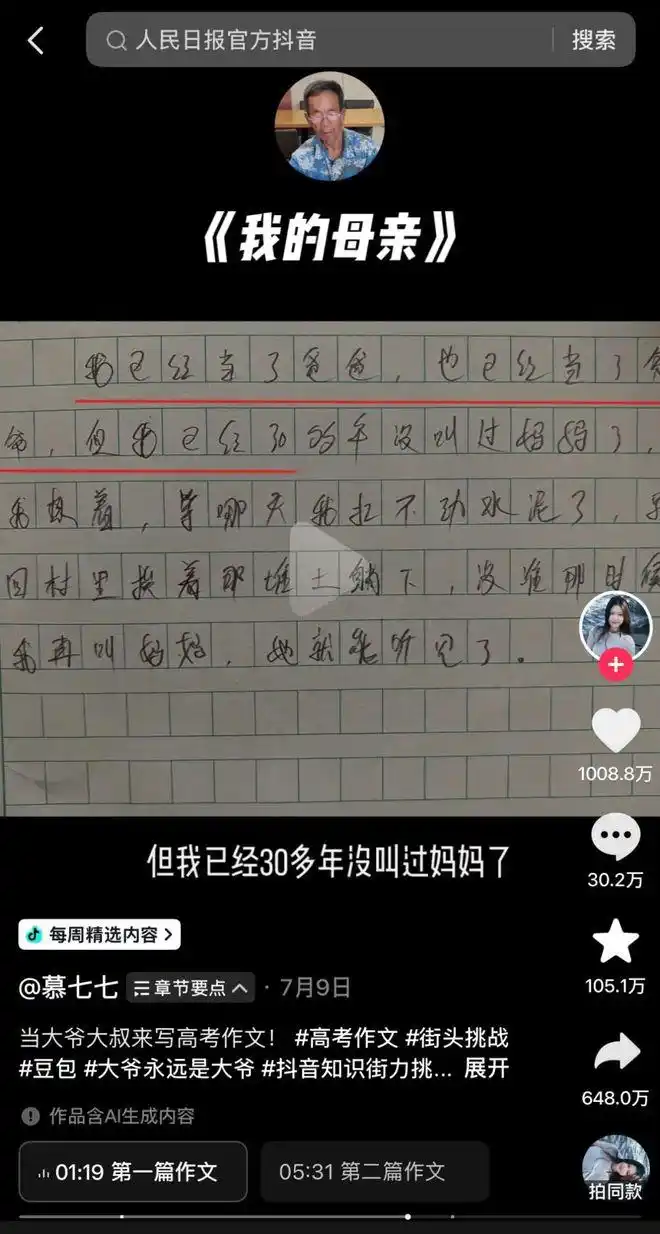 人民日报官方抖音
搜索
《我的母亲》
我已经当了爸爸，也已经当了爷
爷，但我已经30多年没叫过妈妈了，
我想着，等哪天我扛不动水泥了，就
回村里挨着那堆土躺下，没准那时候
我再叫妈妈，她就能听见了。
但我已经30多年没叫过妈妈了
1008.8万
30.2万
105.1万
648.0万
每周精选内容
@慕七七 章节要点 · 7月9日
当大爷大叔来写高考作文！ #高考作文 #街头挑战
#豆包 #大爷永远是大爷 #抖音知识街力挑... 展开
作品含AI生成内容
01:19 第一篇作文
05:31 第二篇作文
拍同款